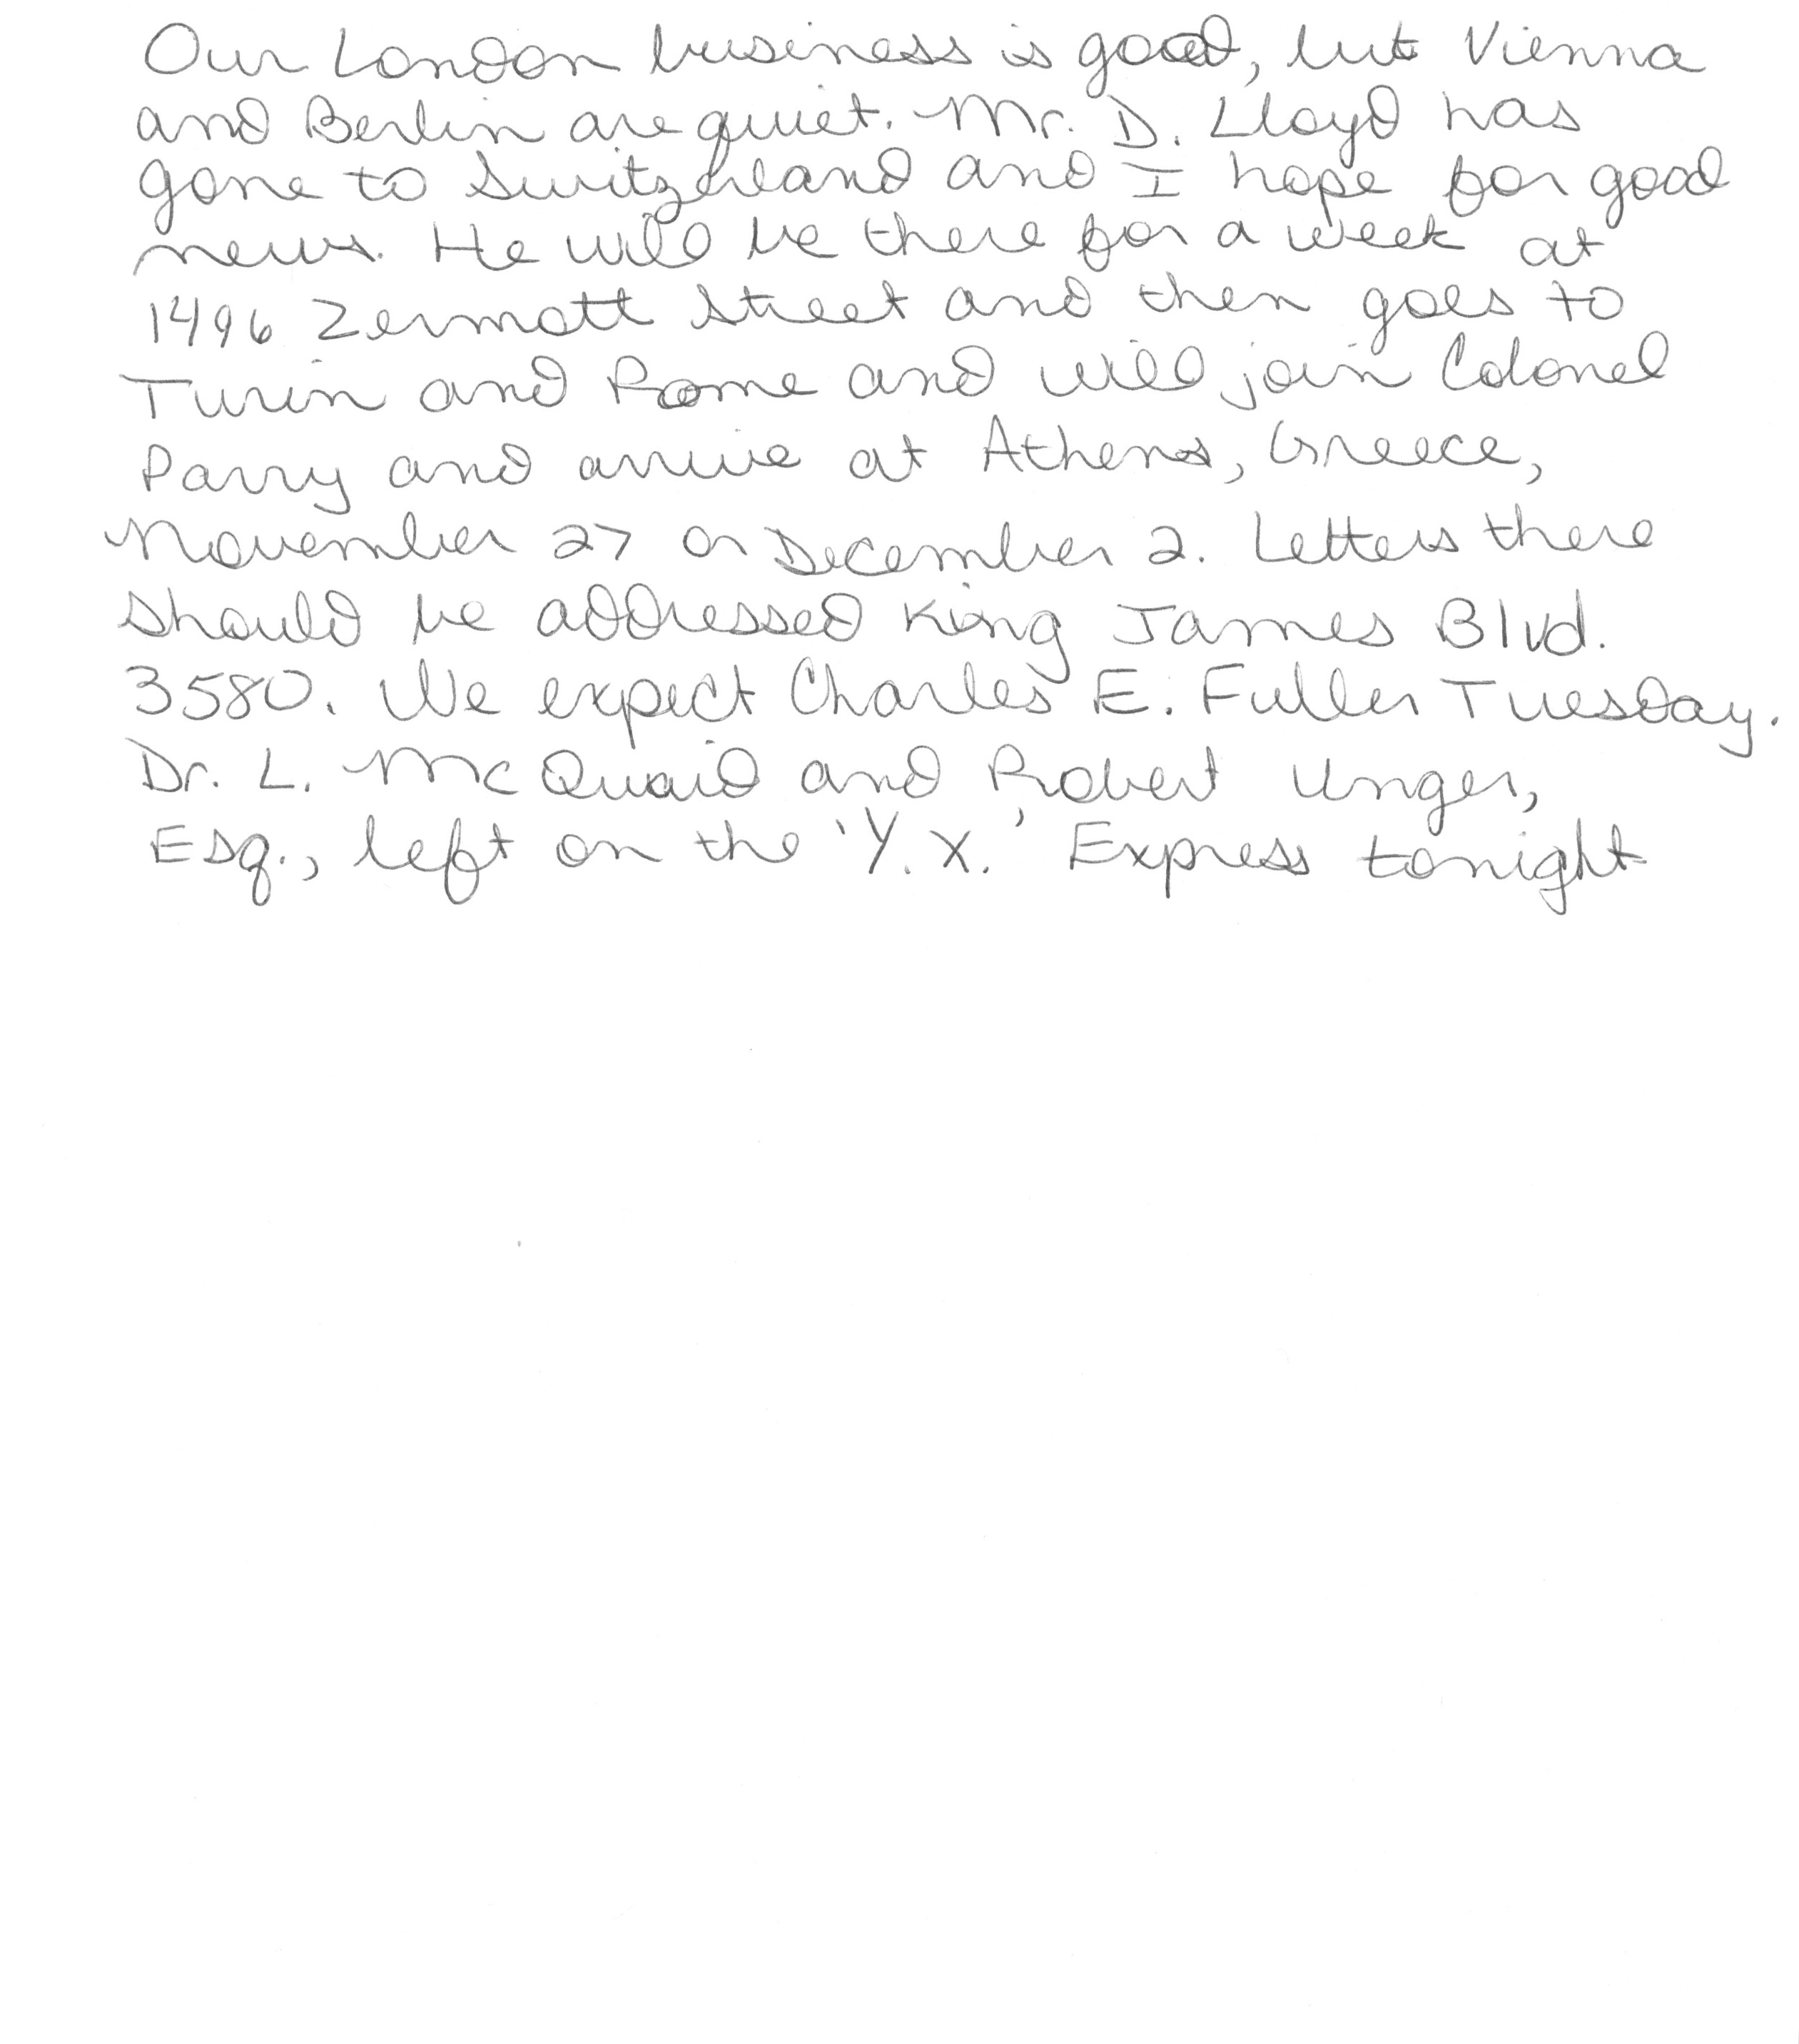 Our London business is good, but Vienna
and Berlin are quiet. Mr. D. Lloyd has
gone to Switzerland and I hope for good
news. He will be there for a week at
1496 Zermott Street and then goes to
Turin and Rome and will join Colonel
Parry and arrive at Athens, Greece,
November 27 or December 2. Letters there
should be addressed King James Blvd.
3580. We expect Charles E. Fuller Tuesday.
Dr. L. McQuaid and Robert Unger,
Esq., left on the 'Y. X.' Express tonight